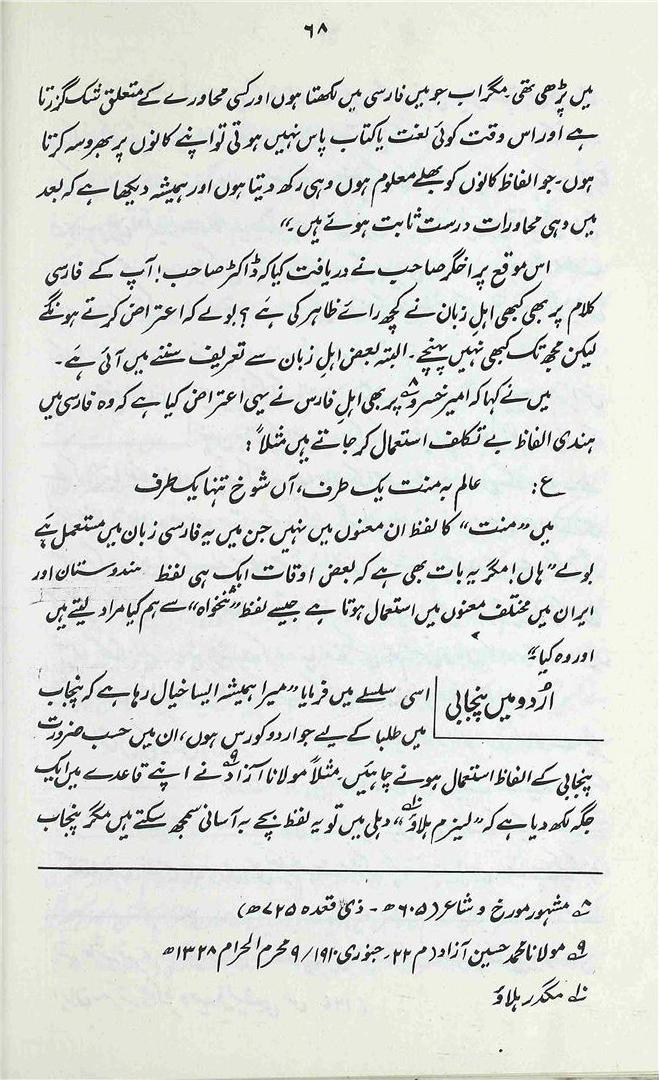 ۶۸
میں پڑھی تھی۔ مگر اب جو میں فارسی میں لکھتا ہوں اور کسی محاورے کے متعلق شک گزرتا
ہے اور اس وقت کوئی لغت یا کتاب پاس نہیں ہوتی تو اپنے کانوں پر بھروسہ کرتا
ہوں۔ جو الفاظ کانوں کو بھلے معلوم ہوں وہی رکھ دیتا ہوں اور ہمیشہ دیکھا ہے کہ بعد
میں وہی محاورات درست ثابت ہوئے ہیں۔“
اس موقع پر اخگر صاحب نے دریافت کیا کہ ڈاکٹر صاحب! آپ کے فارسی
کلام پر بھی کبھی اہلِ زبان نے کچھ رائے ظاہر کی ہے؟ بولے کہ اعتراض کرتے ہونگے
لیکن مجھ تک کبھی نہیں پہنچے۔ البتہ بعض اہل زبان سے تعریف سننے میں آئی ہے۔
میں نے کہا کہ امیر خسرو۸ پر بھی اہلِ فارس نے یہی اعتراض کیا ہے کہ وہ فارسی میں
ہندی الفاظ بے تکلف استعمال کر جاتے ہیں مثلاً:
ع: عالم بہ منت یک طرف، آں شوخ تنہا یک طرف
میں ”منت“ کا لفظ ان معنوں میں نہیں جن میں یہ فارسی زبان میں مستعمل ہے
بولے ”ہاں! مگر یہ بات بھی ہے کہ بعض اوقات ایک ہی لفظ ہندوستان اور
ایران میں مختلف معنوں میں استعمال ہوتا ہے جیسے لفظ ”تنخواہ“ سے ہم کیا مراد لیتے ہیں
اور وہ کیا۔“
اُردو میں پنجابی
اسی سلسلے میں فرمایا ”میرا ہمیشہ ایسا خیال رہا ہے کہ پنجاب
میں طلبا کے لیے جو اردو کورس ہوں، ان میں حسب ضرورت
پنجابی کے الفاظ استعمال ہونے چاہئیں۔ مثلاً مولانا آزاد۹ نے اپنے قاعدے میں ایک
جگہ لکھ دیا ہے کہ ”لیزم ہلاؤ۱۰“ دہلی میں تو یہ لفظ بچے بہ آسانی سمجھ سکتے ہیں مگر پنجاب
۸ مشہور مورخ و شاعر (۶۰۵ھ - ذی قعدہ ۷۲۵ھ)
۹ مولانا محمد حسین آزاد (م ۲۲۔ جنوری ۱۹۱۰/ ۹ محرم الحرام ۱۳۲۸ھ
۱۰ مگدر ہلاؤ